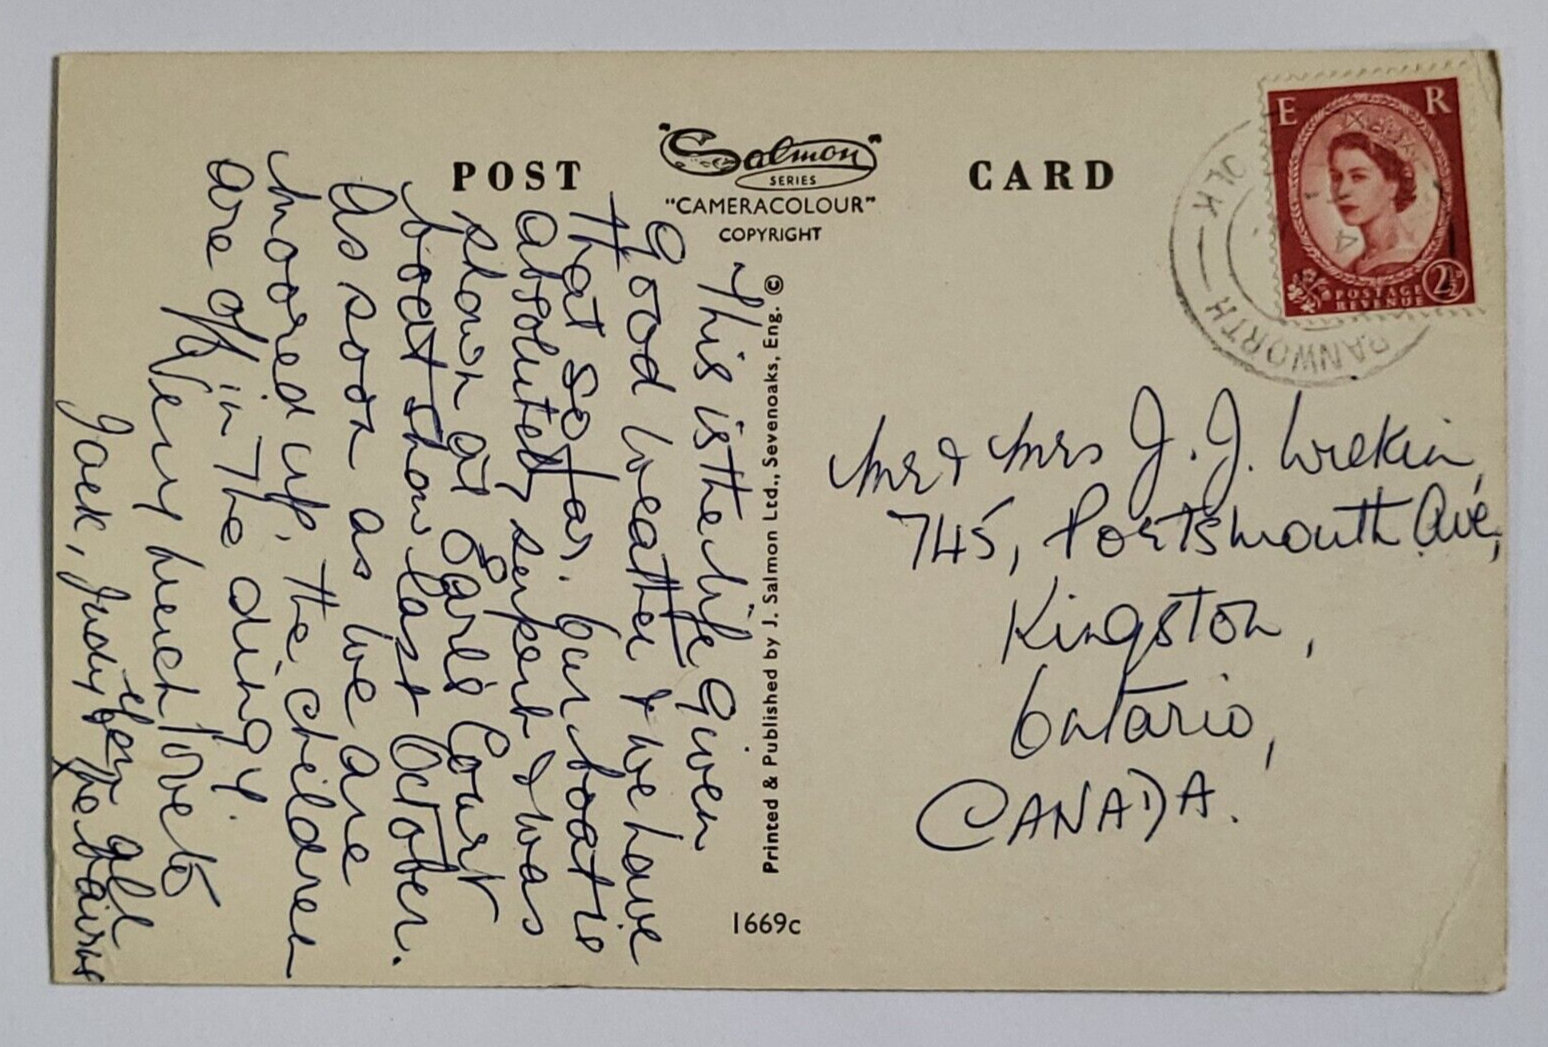 POST CARD
"Salmon"
SERIES
"CAMERACOLOUR"
COPYRIGHT
E R
POSTAGE
REVENUE
2½D
RANWORTH
This is the life given
good weather & we have
that so far. Our boat is
absolutely superb & was
shown at Earls Court
boat show last October.
As soon as we are
moored up, the children
are off in the dingy.
Very much love to
you all
Jack, Judy & the bairns
Printed & Published by J. Salmon Ltd., Sevenoaks, Eng. ©
1669c
Mr & Mrs J. J. Wrekin,
745, Portsmouth Ave,
Kingston,
Ontario,
CANADA.